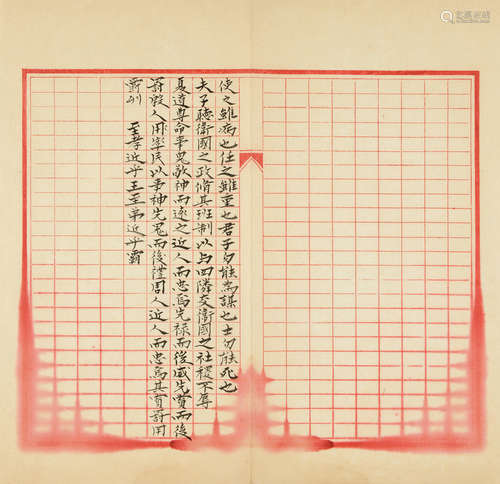 使之雖病也任之雖重也君子勿能為謀也士勿能死也
夫子聽衛國之政脩其班制以与四隣交衛國之社稷不辱
夏道尊命事鬼敬神而遠之近人而忠焉先祿而後威先賞而後
罰殷人用率民以事神先鬼而後禮周人近人而忠焉其賞罰用
爵列　至孝近乎王至弟近乎霸